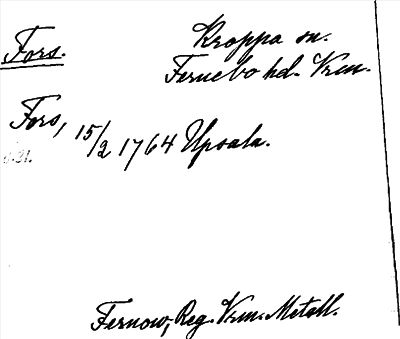 Fors. Kroppa sn.
Fernebo hd. Vrm.
Fors, 15/2 1764 Upsala.
Fernow, Reg. Vrm. Metall.